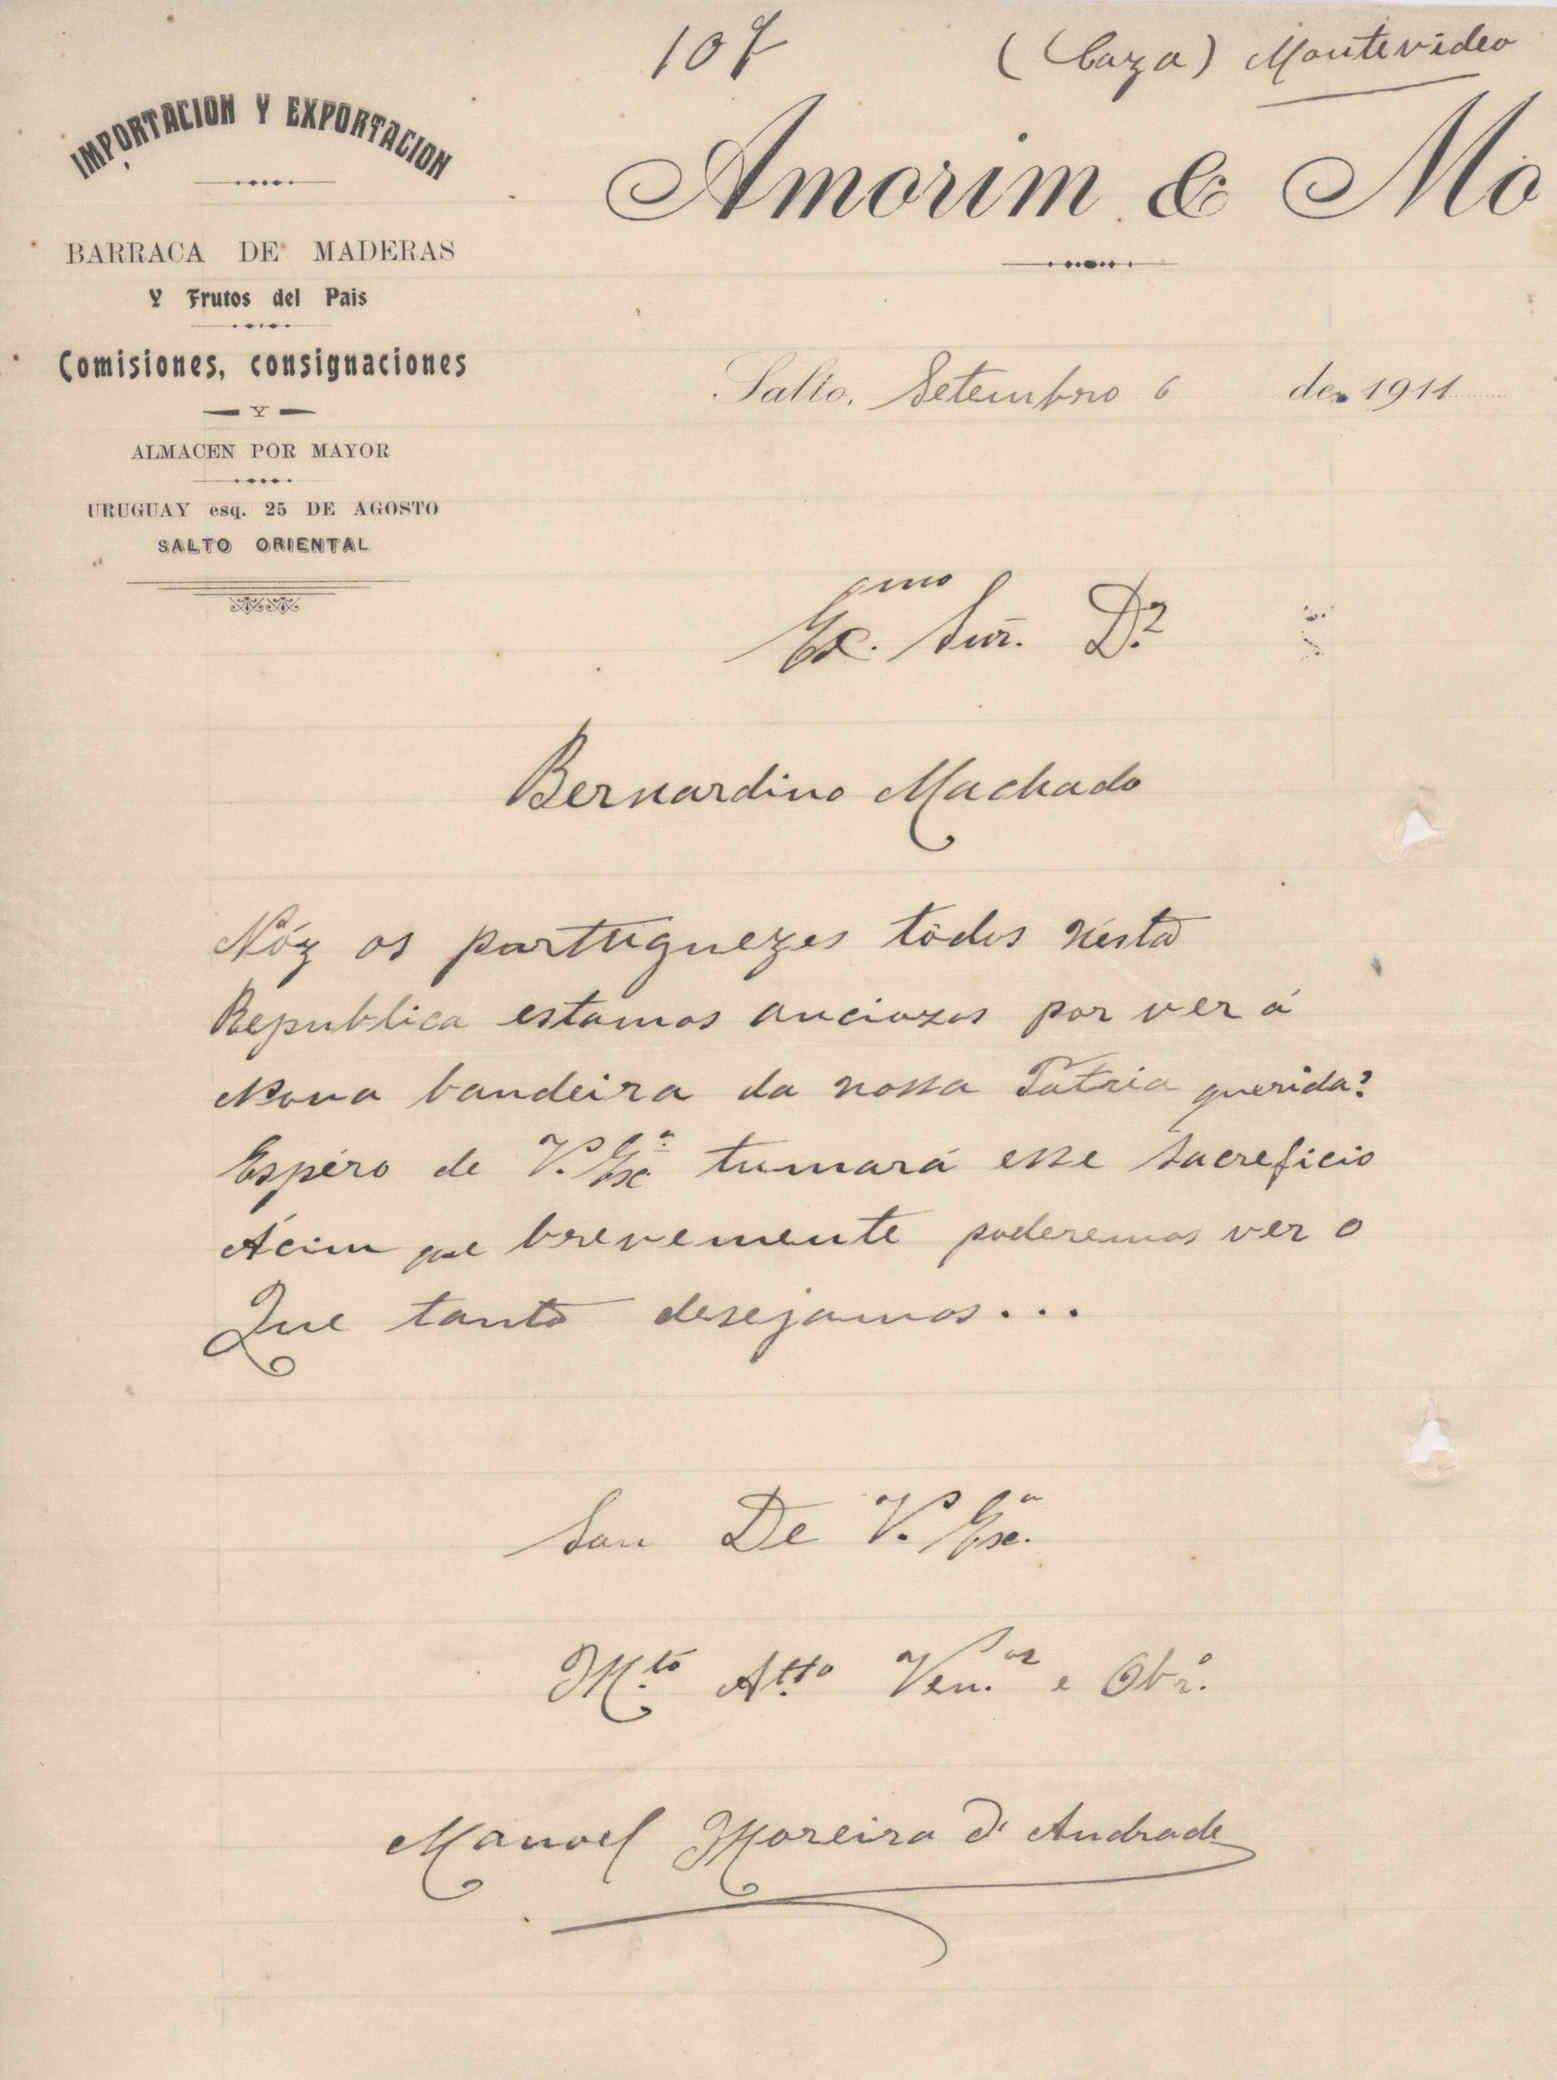 107 (Caza) Montevideo
IMPORTACION Y EXPORTACION
BARRACA DE MADERAS
Y Frutos del Pais
Comisiones, consignaciones
Y
ALMACEN POR MAYOR
URUGUAY esq. 25 DE AGOSTO
SALTO ORIENTAL
Amorim & Mo
Salto, Setembro 6 de 1911
Ex.mo Snr. D.r
Bernardino Machado
Nóz os portuguezes todos nésta
Republica estamos anciozos por ver á
Nova bandeira da nossa Patria querida?
Espéro de V. Exª tumará esse sacreficio
Ácim que brevemente poderemos ver o
Que tanto desejamos...
Sou De V. Exª
M.to Att.o Ven.or e Obr.o
Manoel Moreira d'Andrade